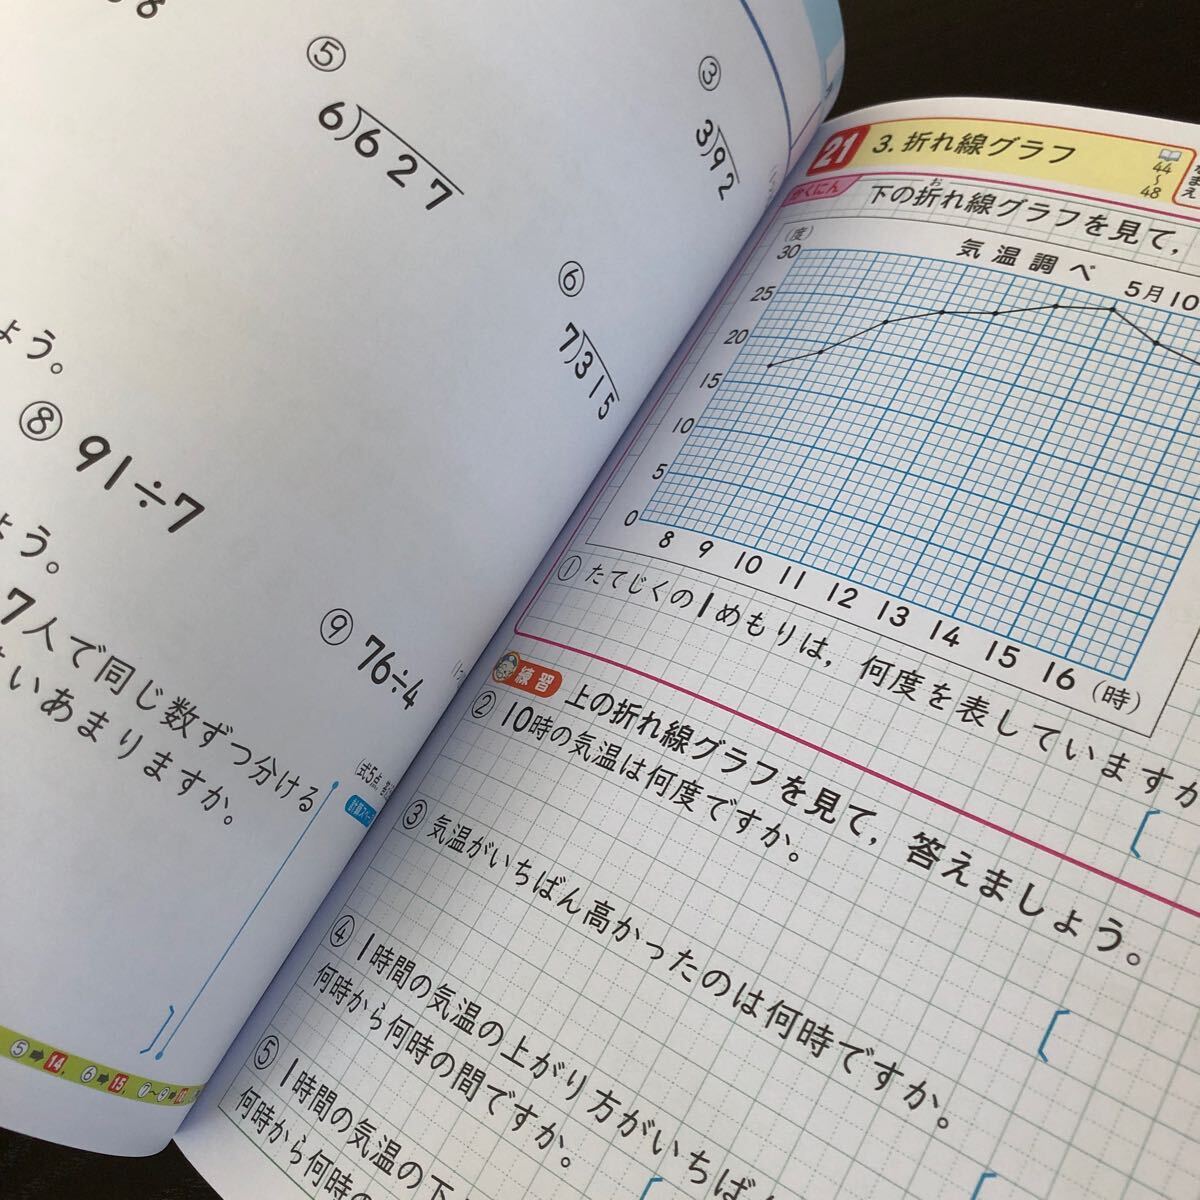 8
⑤
6)627
③
3)92
⑥
7)315
ょう。
⑧ 91÷7
ょう。
⑨ 76÷4
7人で同じ数ずつ分ける
いあまりますか。
(式5点
計算スペース
⑤➡14, ⑥➡15, ⑦〜⑨➡
21 3. 折れ線グラフ
44〜48
なまえ
かくにん 下の折れ線グラフを見て,
お
気温調べ 5月10
(度)
30
25
20
15
10
5
0
8 9 10 11 12 13 14 15 16 (時)
① たてじくの1めもりは, 何度を表していますか
練習 上の折れ線グラフを見て, 答えましょう。
② 10時の気温は何度ですか。
③ 気温がいちばん高かったのは何時ですか。
④ 1時間の気温の上がり方がいちばん
何時から何時の間ですか。
⑤ 1時間の気温の下
何時から何時の